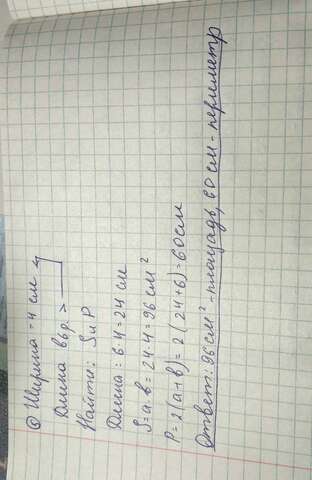 ⑥ Ширина - 4 см
Длина в 6р. >
Найти: S и P
Длина: 6·4=24 см
S=a·b=24·4=96 см²
P=2(a+b)=2(24+6)=60см
Ответ: 96см²-площадь, 60см-периметр